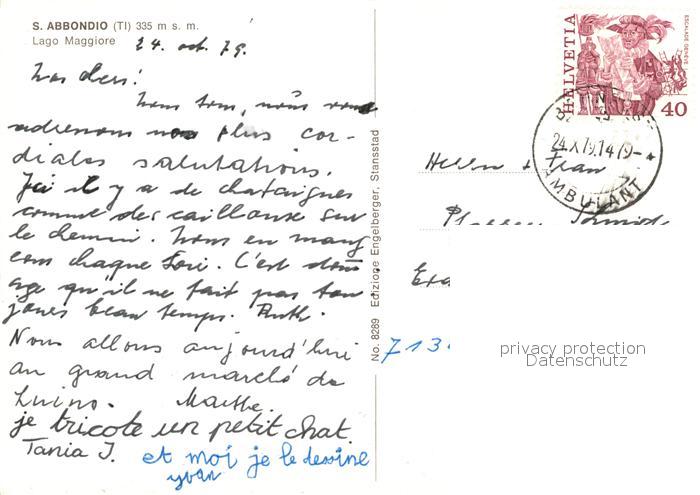 S. ABBONDIO (TI) 335 m s. m.
Lago Maggiore
24. oct. 79.
Nos chers!
Nous tous, nous vous
adressons nos plus cor-
diales salutations.
Ici il y a de chataignes
comme des cailloux sur
le chemin. Nous en mang
eons chaque soir. C'est dom
age qu'il ne fait pas tou
jours beau temps. Ruth.
Nous allons aujourd'hui
au grand marché de
Luino. Marthe.
je tricote un petit chat.
Tania J. et moi je le dessine
yvan
No. 8289 Edizione Engelberger, Stansstad
HELVETIA
ESCALADE GENÈVE
40
24.X.79.14
AMBULANT
713.
privacy protection
Datenschutz